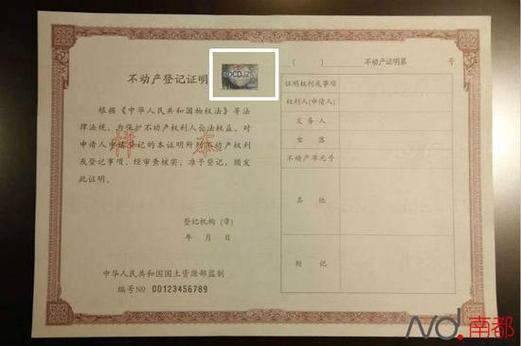 不动产登记证明
根据《中华人民共和国物权法》等法
律法规，为保护不动产权利人合法权益，对
申请人申请登记的本证明所列不动产权利
或登记事项，经审查核实，准予登记，颁发
此证明。
样本
登记机构（章）
年 月 日
中华人民共和国国土资源部监制
编号NO 00123456789
（ ） 不动产证明第 号
证明权利或事项
权利人(申请人)
义务人
坐落
不动产单元号
其他
附记
nd.南都